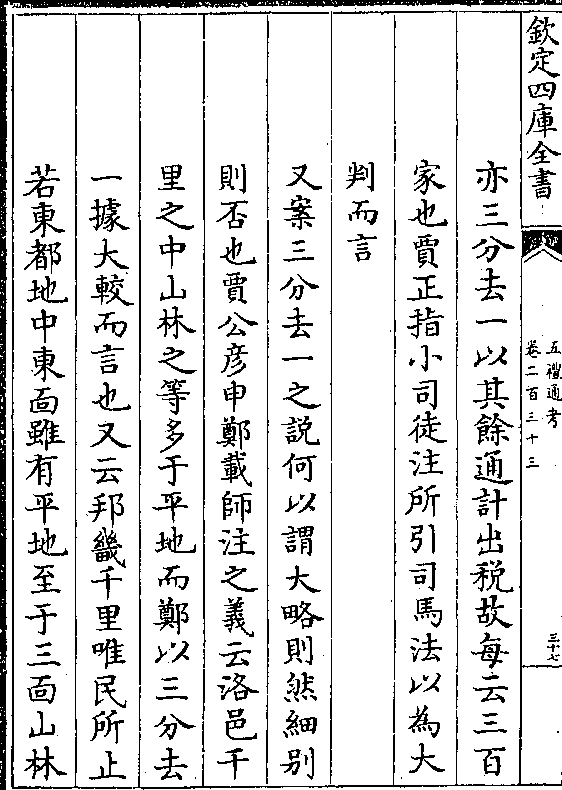 欽定四庫全書
五禮通考
卷二百三十三
三十七
亦三分去一以其餘通計出税故每云三百
家也賈正指小司徒注所引司馬法以為大
判而言
又案三分去一之説何以謂大略則然細别
則否也賈公彦申鄭載師注之義云洛邑千
里之中山林之等多于平地而鄭以三分去
一據大較而言也又云邦畿千里唯民所止
若東都地中東面雖有平地至于三面山林